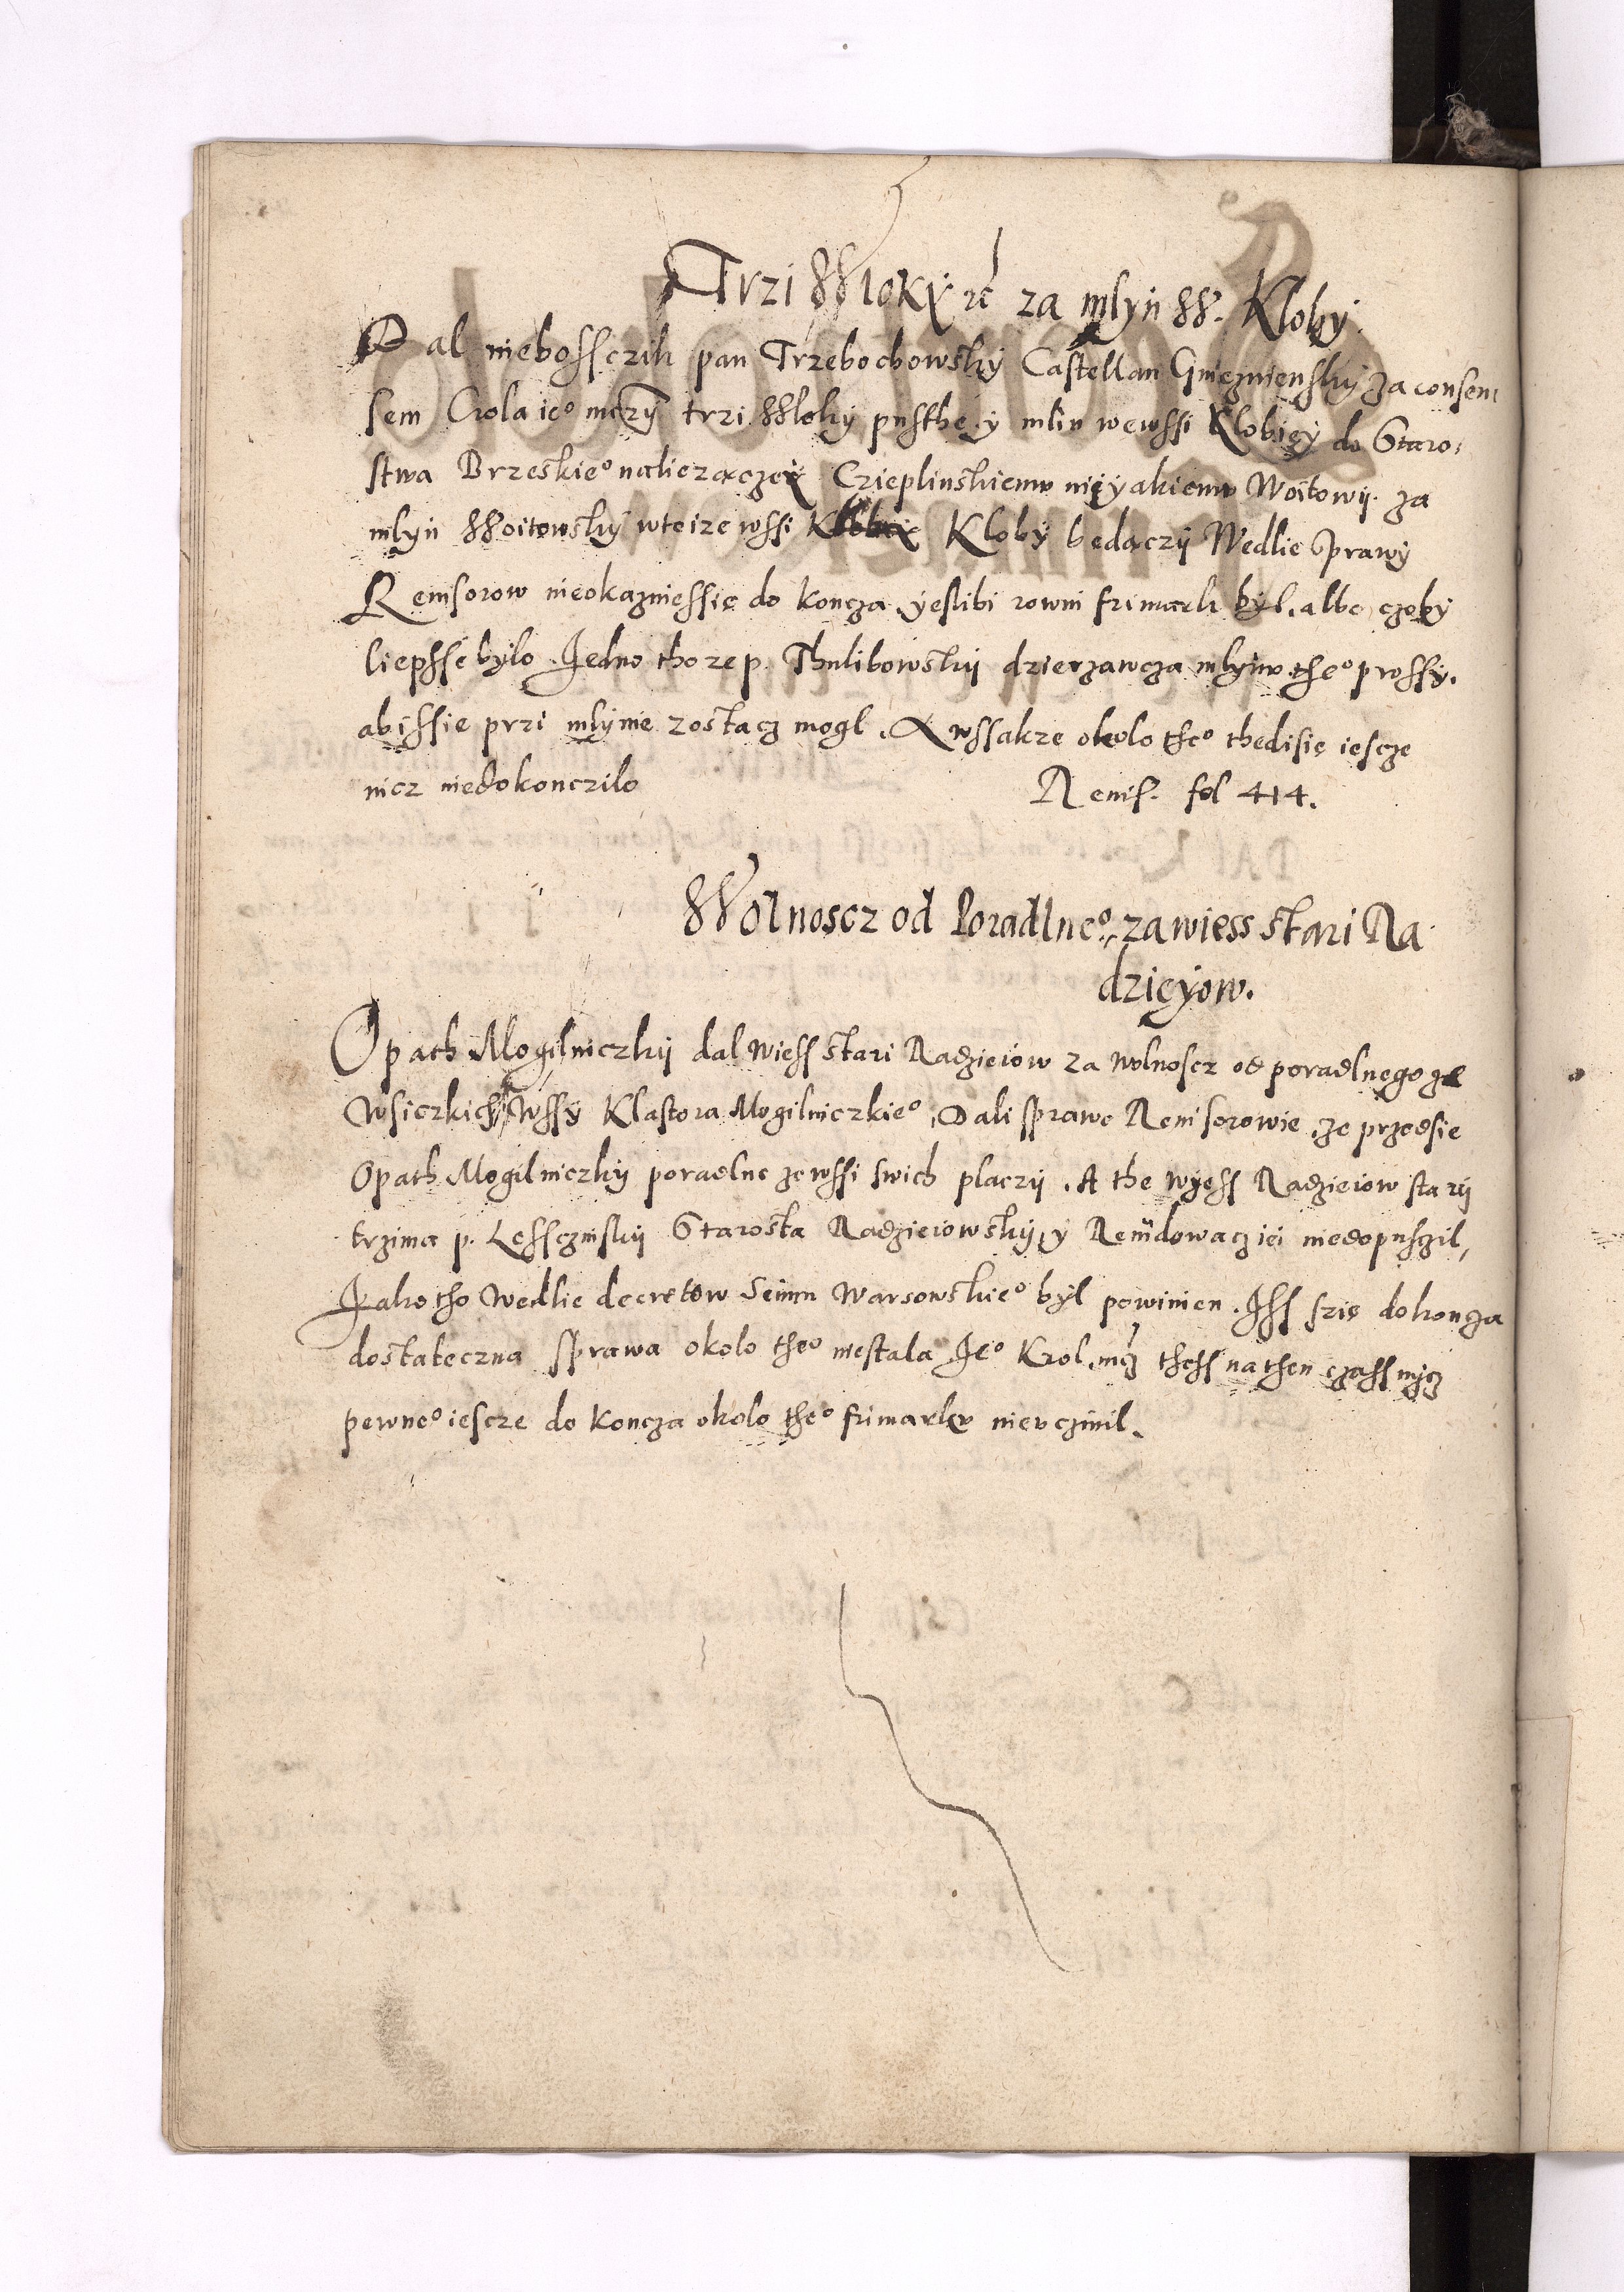 Trzi Wloky etc za mlyn W. Kloby
Dal niebossczik pan Trzebochowsky Castellan Gniezniensky za consen
sem Crola ieo mczy trzi Wloky pusthe y mlin wewssi Klobiey do Staro
stwa Brzeskieo naliezączey Czieplinskiemu nieyakiemu Woitowij za
mlyn Woitowsky wteize wssi Kloby bedaczij Wedlie sprawy
Reuisorow nieokazniessie do koncza yeslibi rowni frimark byl, albo czoby
liepsse bylo. Jedno tho ze p. Thulibowskij dzierzawcza mlynu theo prossy,
abissie przi mlynie zostacz mogl. A wssakze okolo theo thedisię iescze
nicz niedokonczilo
Reuis. fol 414.
Wolnoscz od Poradlneo, za wiess stari Ra
dzieyow.
Opath Mogilniczkij dal wiess stari Radzieiow za wolnoscz od poradlnego ze
wsiczkich wssy Klastora Mogilniczkieo, Dali sprawe Reuisorowie, ze przedsie
Opath Mogilniczky poradlne ze wssi swich placzij. A the wyess Radzieiow starij
trzima p. Lessczinskij Starosta Radzieiowsky, y Reuidowacz iei niedopusczil,
Jako tho Wedlie decretow Seimu Warsowskieo byl powinien. Jss szie dokoncza
dostateczna sprawa okolo theo niestala Jeo Krol. mcz thess nathen czass nycz
pewneo iescze do koncza okolo theo frimarku nieuczinil.